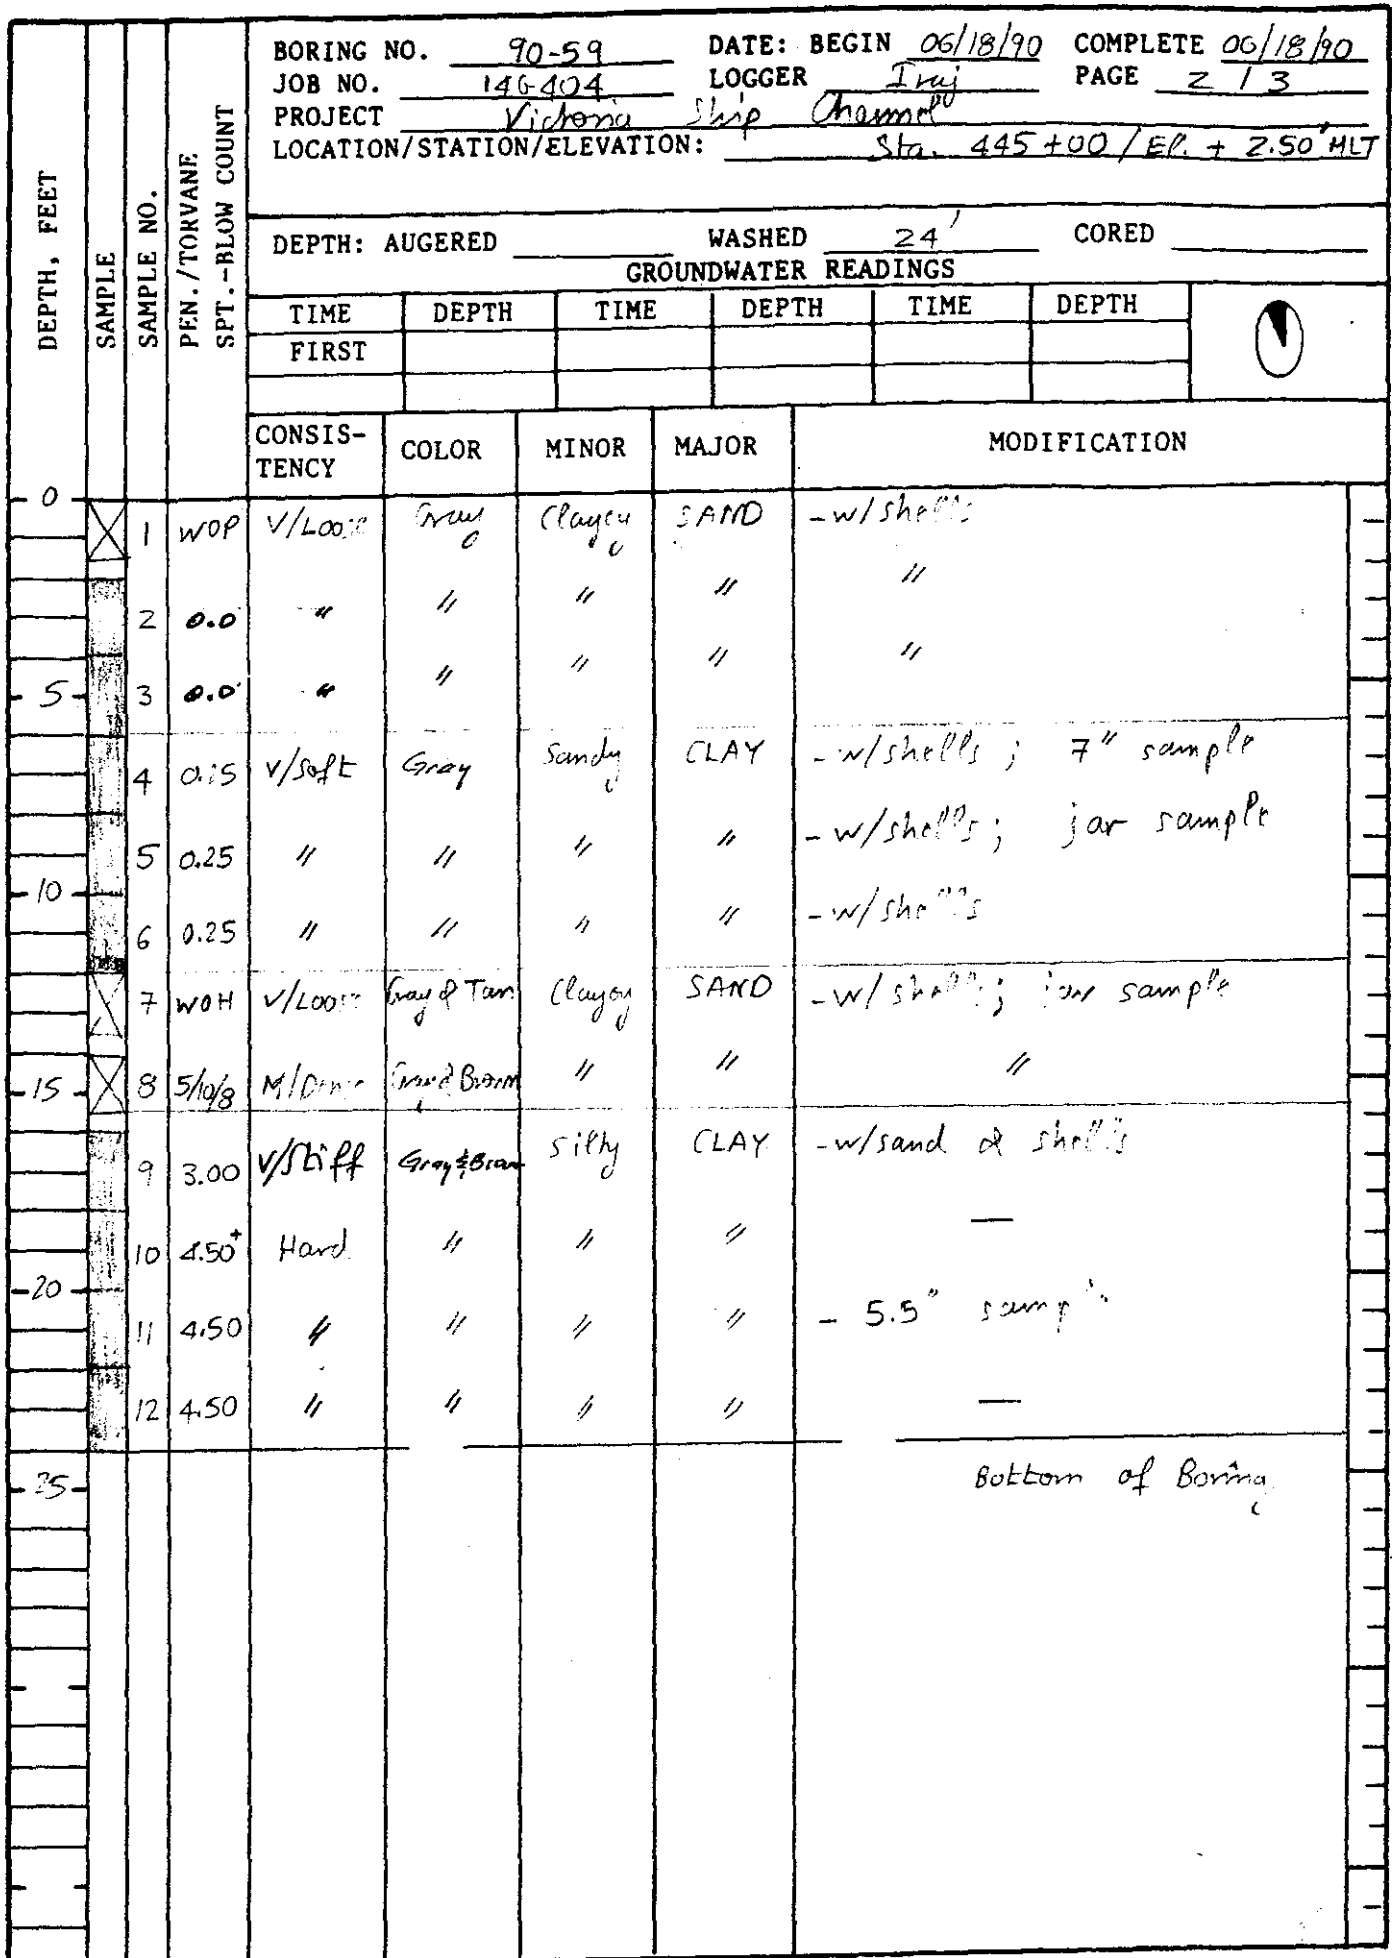 BORING NO. 90-59 DATE: BEGIN 06/18/90 COMPLETE 06/18/90
JOB NO. 14G-404 LOGGER Iraj PAGE 2 / 3
PROJECT Victoria Ship Channel
LOCATION/STATION/ELEVATION: Sta. 445+00 / El. + 2.50' MLT
DEPTH: AUGERED WASHED 24' CORED
GROUNDWATER READINGS
TIME DEPTH TIME DEPTH TIME DEPTH
FIRST
DEPTH, FEET
SAMPLE
SAMPLE NO.
PEN./TORVANE
SPT.-BLOW COUNT
CONSIS-
TENCY COLOR MINOR MAJOR MODIFICATION
0
1 WOP V/Loose Gray Clayey SAND -w/shells
2 0.0 " " " " "
3 0.0 " " " " "
5
4 0.15 V/Soft Gray Sandy CLAY -w/shells ; 7" sample
5 0.25 " " " " -w/shells; jar sample
10
6 0.25 " " " " -w/shells
7 WOH V/Loose Gray & Tan Clayey SAND -w/shells; jar sample
15 8 5/10/8 M/Dense Gray & Brown " " "
9 3.00 V/Stiff Gray & Brown Silty CLAY -w/sand & shells
10 4.50+ Hard " " " —
20
11 4.50 " " " " - 5.5" sample
12 4.50 " " " " —
25 Bottom of Boring